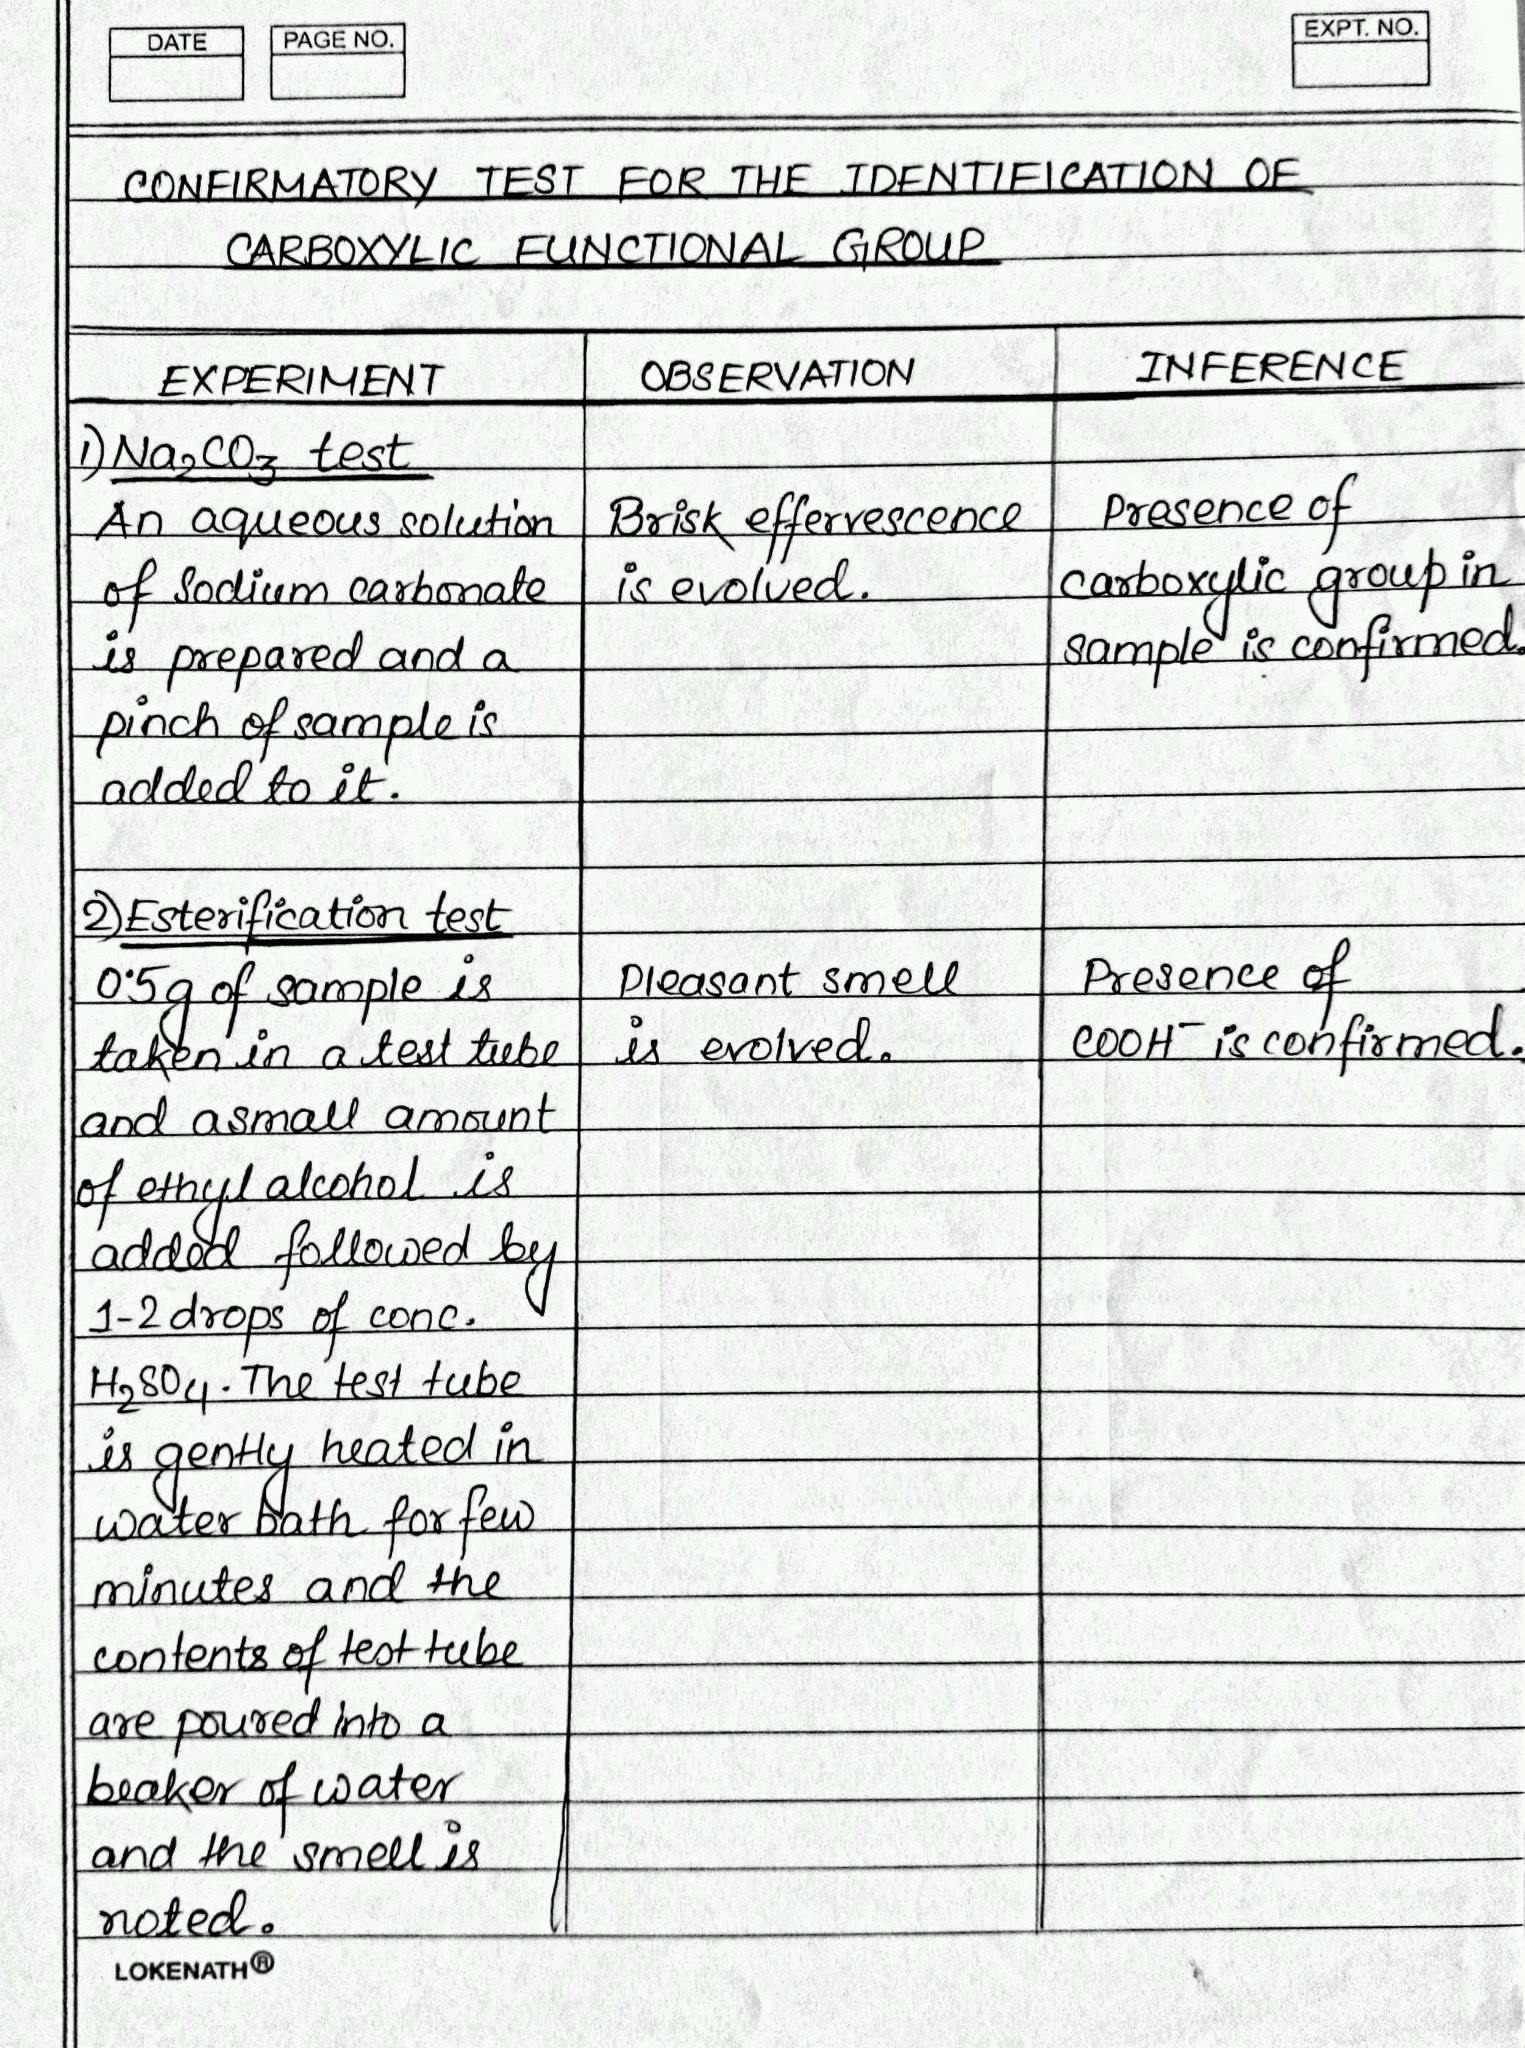 DATE PAGE NO. EXPT. NO.
CONFIRMATORY TEST FOR THE IDENTIFICATION OF
CARBOXYLIC FUNCTIONAL GROUP
EXPERIMENT OBSERVATION INFERENCE
1) Na₂CO₃ test
An aqueous solution
of Sodium carbonate
is prepared and a
pinch of sample is
added to it.
Brisk effervescence
is evolved.
Presence of
carboxylic group in
sample is confirmed.
2) Esterification test
0.5g of sample is
taken in a test tube
and a small amount
of ethyl alcohol is
added followed by
1-2 drops of conc.
H₂SO₄. The test tube
is gently heated in
water bath for few
minutes and the
contents of test tube
are poured into a
beaker of water
and the smell is
noted.
Pleasant smell
is evolved.
Presence of
COOH⁻ is confirmed.
LOKENATH®